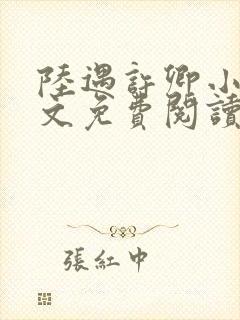 陸遇許卿小
文免費閱讀
張紅中